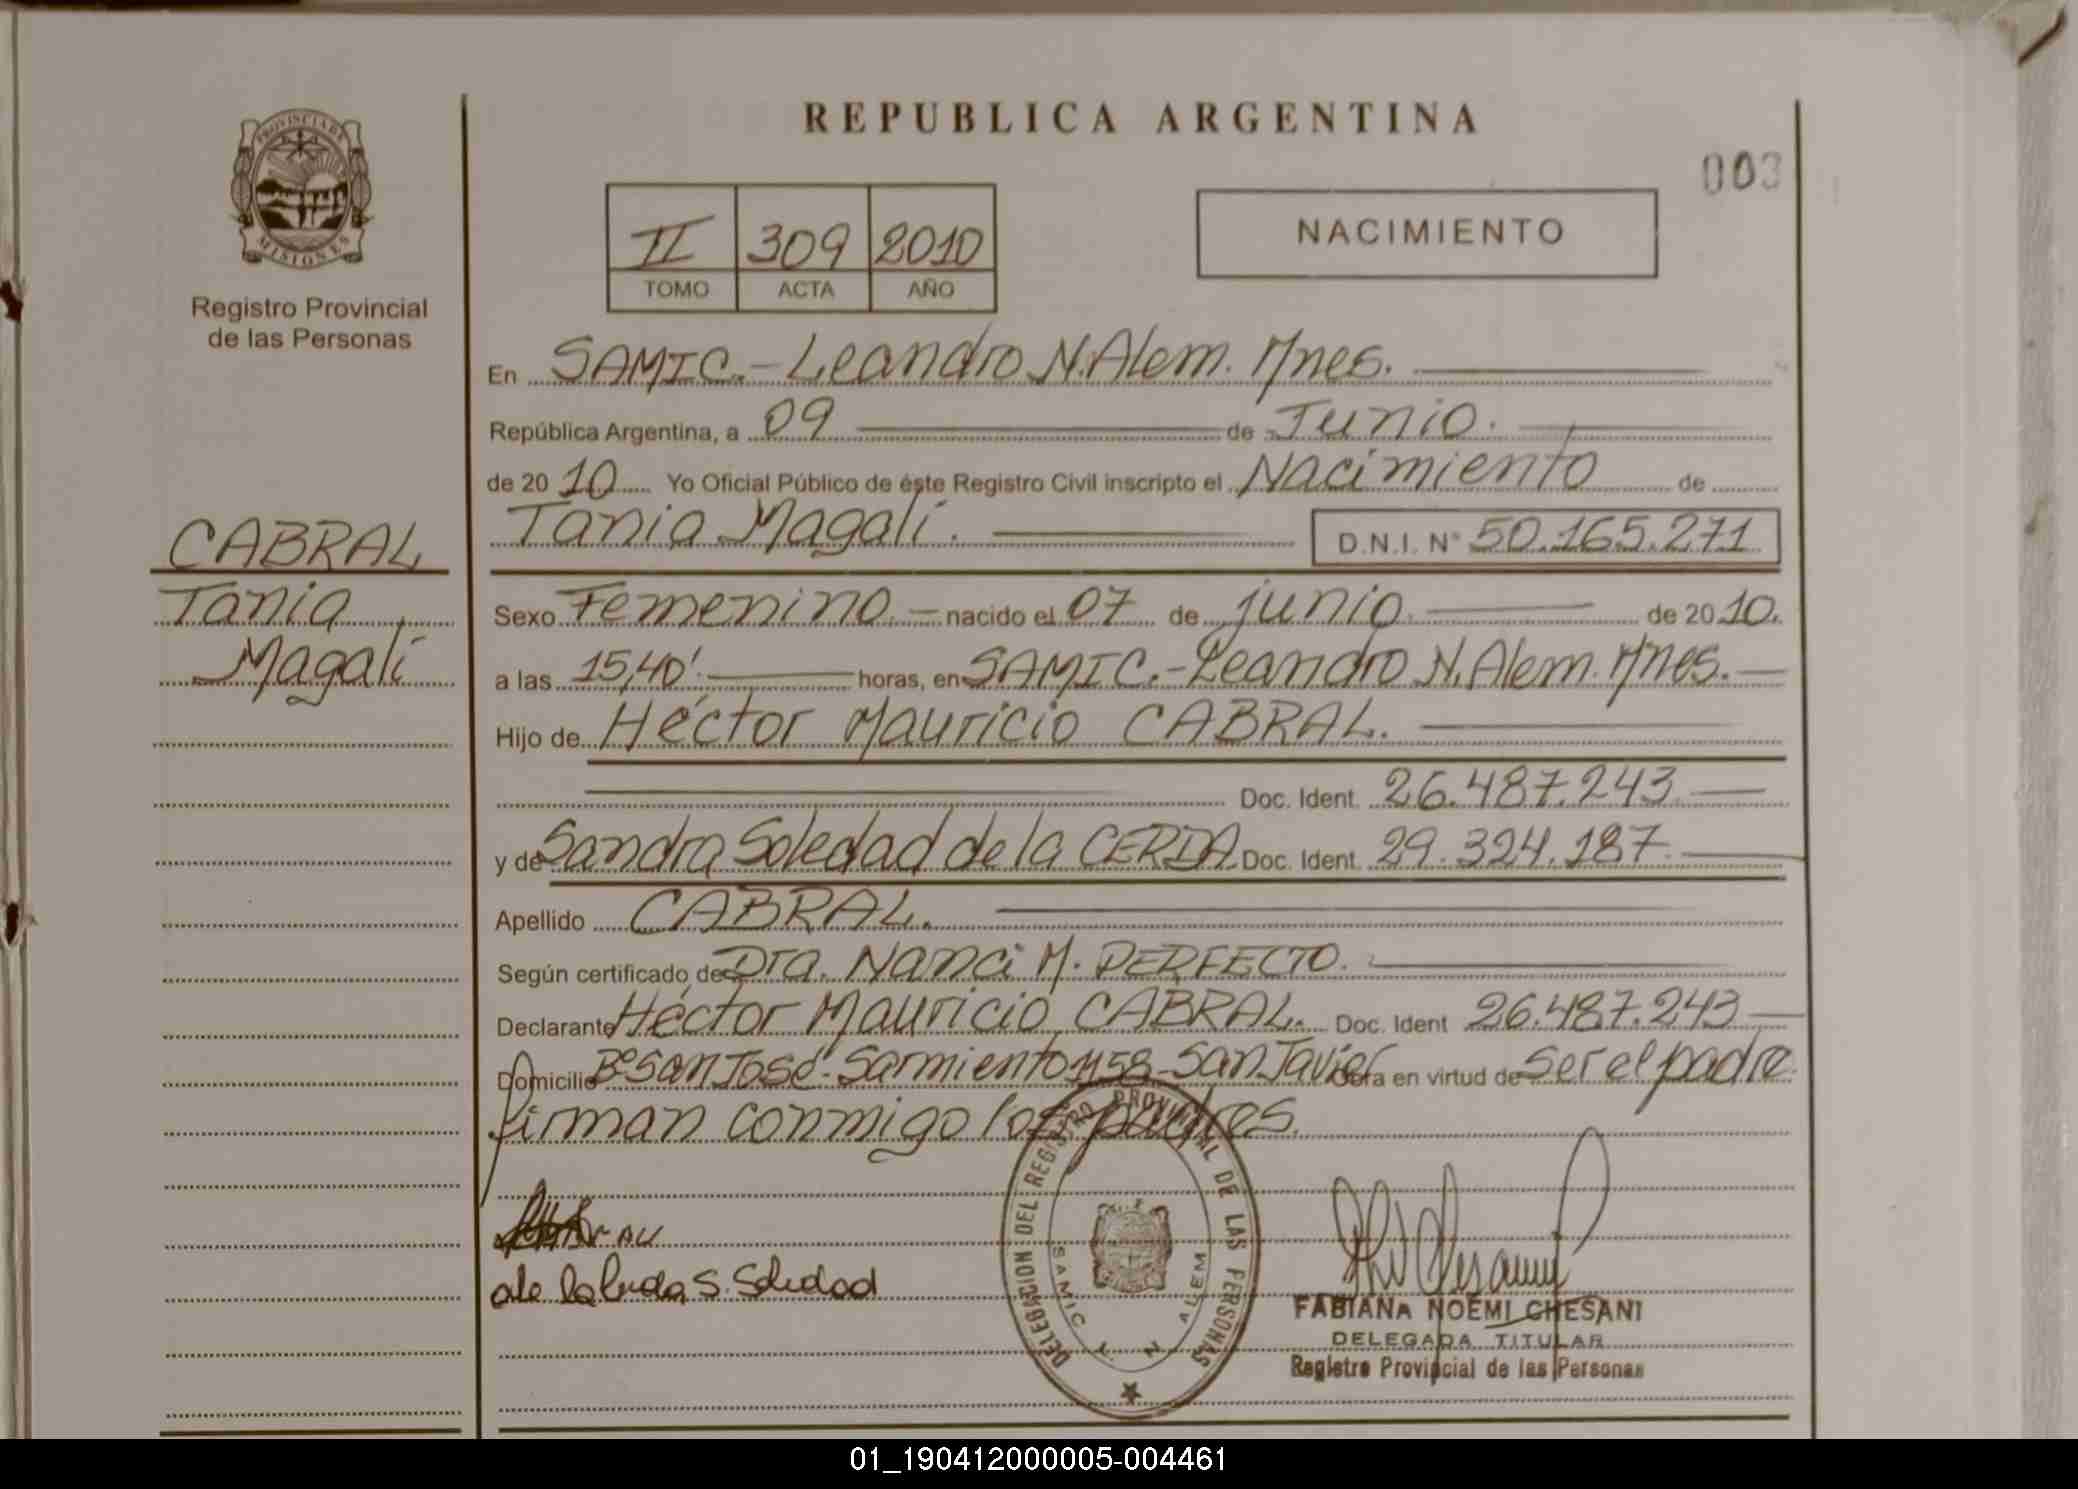 REPUBLICA ARGENTINA
003
PROVINCIA DE
MISIONES
Registro Provincial
de las Personas
II 309 2010
TOMO ACTA AÑO
NACIMIENTO
En SAMIC.- Leandro N. Alem. Mnes.
República Argentina, a 09 de Junio.
de 20 10 Yo Oficial Público de éste Registro Civil inscripto el Nacimiento de
Tania Magalí. D.N.I. N° 50.165.271
CABRAL
Tania
Magalí
Sexo Femenino.- nacido el 07 de junio de 20 10.
a las 15,40' horas, en SAMIC.- Leandro N. Alem. Mnes.
Hijo de Héctor Mauricio CABRAL.
Doc. Ident. 26.487.243
y de Sandra Soledad de la CERDA Doc. Ident. 29.324.187
Apellido CABRAL.
Según certificado de Dra. Nanci M. PERFECTO.
Declarante Héctor Mauricio CABRAL. Doc. Ident 26.487.243
Domicilio B° San José- Sarmiento 1158- San Javier Obra en virtud de ser el padre
firman conmigo los padres.
de la Cerda S. Soledad
DELEGACION DEL REGISTRO PROVINCIAL DE LAS PERSONAS
SAMIC L. N. ALEM
FABIANA NOEMI CHESANI
DELEGADA TITULAR
Registro Provincial de las Personas
01_190412000005-004461